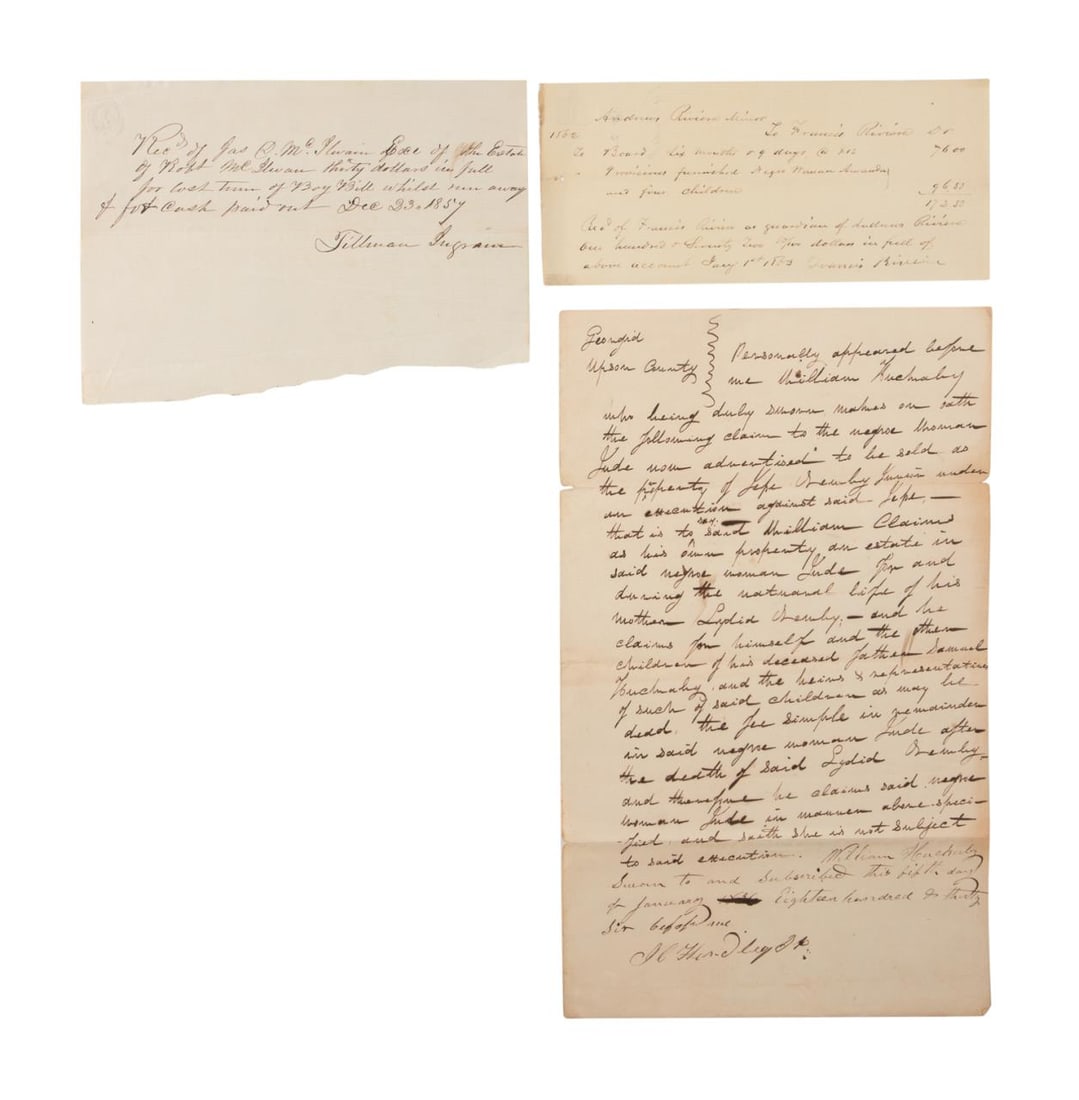 Recd of Jas R. McIlwain Exe of the Estate
of Robt McIlwan thirty dollars in full
for lost time of Boy Bill whilst run away
& for cash paid out Dec 23d 1857
Tillman Ingram
Andrews Riviere Minor
1862 To Francis Riviere Dr
To Board six months & 9 days @ 76.00
" " Provisions furnished Negro Woman Amanda
and four children 96.50
172.50
Recd of Francis Riviere as guardian of Andrews Riviere
One hundred & Seventy Two dollars in full of
above account Jany 1st 1863 Francis Riviere
Georgia
Upson County Personally appeared before
me William Huckaby
who being duly sworn makes on oath
the following claim to the negro Woman
Jude now advertised to be sold as
the property of Jesse Wemby Junior under
an execution against said Jesse, —
that is to say said William Claims
as his own property an estate in
said negro woman Jude for and
during the natural life of his
mother Lydia Wemby, — and he
claims for himself and the other
children of his deceased father Samuel
Huckaby, and the heirs & representatives
of such of said children as may be
dead, the fee simple in remainder
in said negro woman Jude after
the death of said Lydia Wemby,
and therefore he claims said negro
woman Jude in manner above speci-
-fied, and saith she is not subject
to said execution. William Huckaby
Sworn to and Subscribed this fifth day
of January Eighteen hundred & thirty
six before me